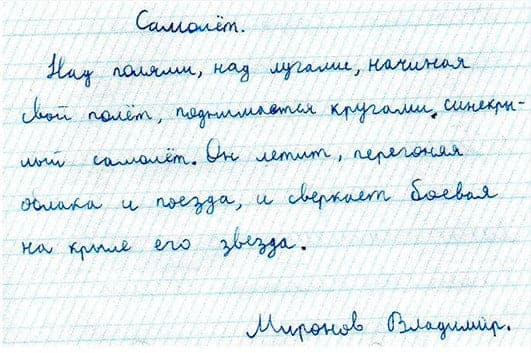 Самолёт.
Над полями, над лугами, начиная
свой полёт, поднимается кругами синекры-
лый самолёт. Он летит, перегоняя
облака и поезда, и сверкает боевая
на крыле его звезда.
Миронов Владимир.